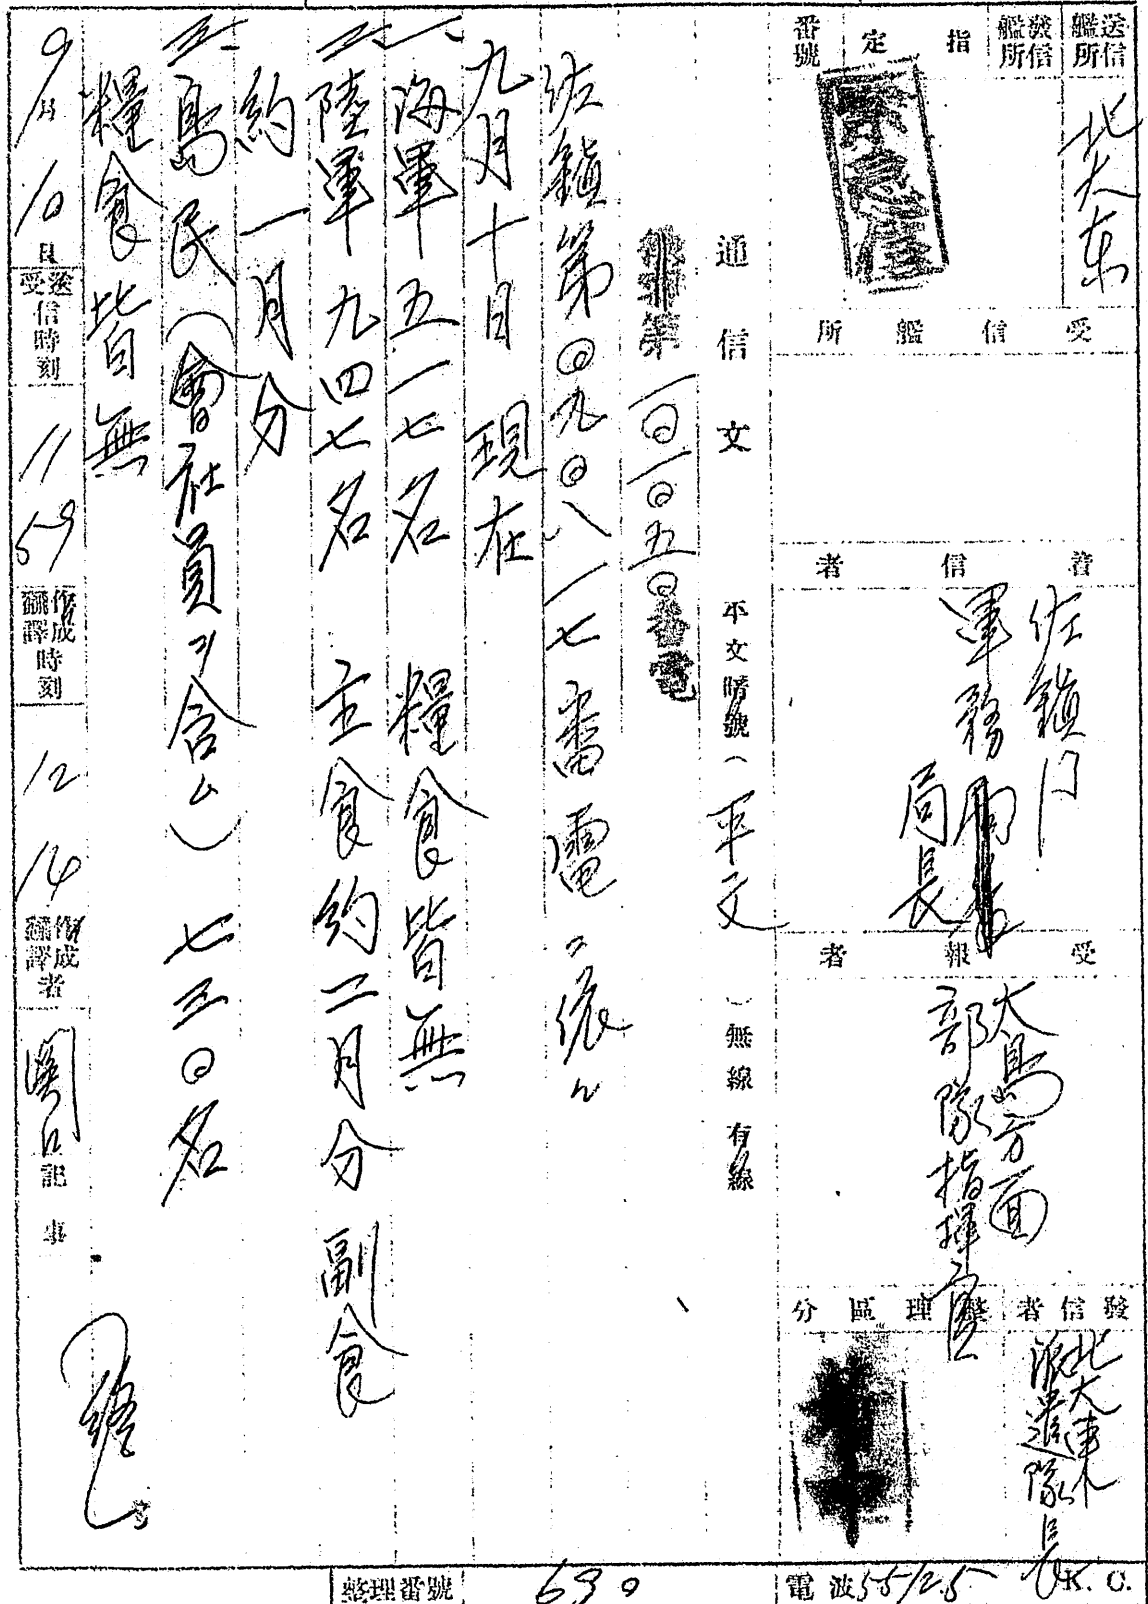 送信艦所
北大東
發信艦所
指定
緊急信
番號
受信艦所
着信者
佐鎮
軍務局長
受報者
大島方面
部隊指揮官
發信者
北大東
派遣隊長
整理區分
通信文 平文暗號(平文)無線有線
第一〇一〇五〇番電
佐鎮第〇九〇八一七番電ニ依ル
九月十日 現在
一、海軍五一七名 糧食皆無
二、陸軍九四七名 主食約二月分 副食
約一月分
三、島民(會社員ヲ含ム)七三〇名
糧食皆無
9月10日
送受信時刻
11 59
作成翻譯時刻
12 14
作成翻譯者
関口
記事
整理番號 690
電波 5512.5 K.C.